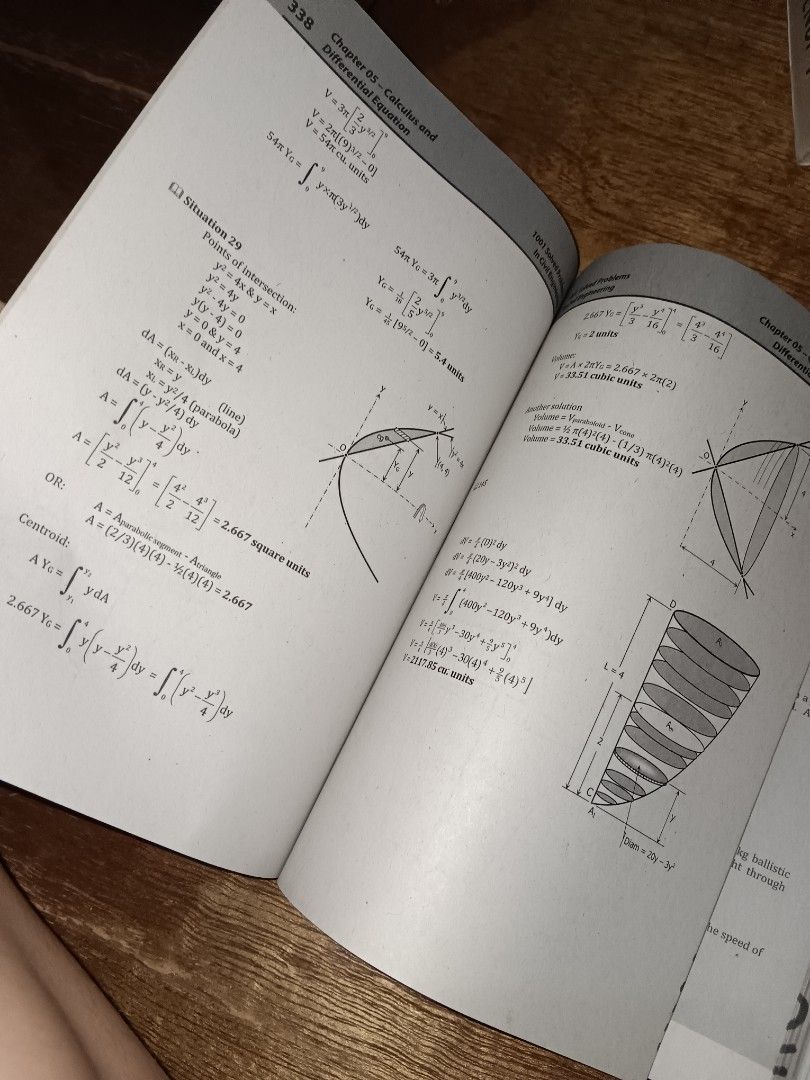 338
Chapter 05 – Calculus and
Differential Equation
V = 3π[2/3 y^3/2]_0^9
V = 2π[(9)^3/2 - 0]
V = 54π cu. units
54π Y_G = ∫_0^9 y×π(3y^1/2)dy
54π Y_G = 3π ∫_0^9 y^3/2 dy
Y_G = 1/18 [2/5 y^5/2]_0^9
Y_G = 1/45 [9^5/2 - 0] = 5.4 units
Situation 29
Points of intersection:
y² = 4x & y = x
y² = 4y
y² - 4y = 0
y(y - 4) = 0
y = 0 & y = 4
x = 0 and x = 4
dA = (x_R - x_L)dy
x_R = y (line)
x_L = y²/4 (parabola)
dA = (y - y²/4) dy
A = ∫_0^4 (y - y²/4) dy
A = [y²/2 - y³/12]_0^4 = [4²/2 - 4³/12] = 2.667 square units
OR:
A = A_parabolic segment - A_triangle
A = (2/3)(4)(4) - ½(4)(4) = 2.667
Centroid:
A Y_G = ∫_y₁^y₂ y dA
2.667 Y_G = ∫_0^4 y(y - y²/4)dy = ∫_0^4 (y² - y³/4)dy
y
y = x
O
cg
Y_G
y
(4, 4)
x
1001 Solved
in Civil
Solved Problems
Engineering
Chapter 05
2.667 Y_G = [y³/3 - y⁴/16]_0^4 = [4³/3 - 4⁴/16]
Y_G = 2 units
Volume:
V = A × 2πY_G = 2.667 × 2π(2)
V = 33.51 cubic units
Another solution
Volume = V_paraboloid - V_cone
Volume = ½ π(4)²(4) - (1/3) π(4)²(4)
Volume = 33.51 cubic units
y
O
x
4
dV = π/4 (D)² dy
dV = π/4 (20y - 3y²)² dy
dV = π/4 [400y² - 120y³ + 9y⁴] dy
(400y² - 120y³ + 9y⁴)dy
y³ - 30y⁴ + 9/5 y⁵]
(4)³ - 30(4)⁴ + 9/5 (4)⁵]
V = 2117.85 cu. units
D
L = 4
2
C
y
Diam = 20y – 3y²
kg ballistic
through
he speed of